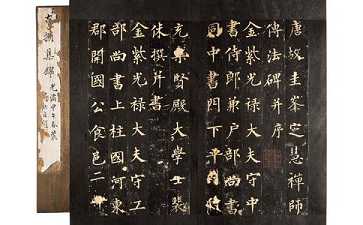 唐故圭峯定慧禪師
傳法碑并序
金紫光祿大夫守中
書侍郎兼戶部尚書
同中書門下平章事
充集賢殿大學士裴
休撰并書
金紫光祿大夫守工
部尚書上柱國河東
郡開國公食邑二
光緒甲午春裝